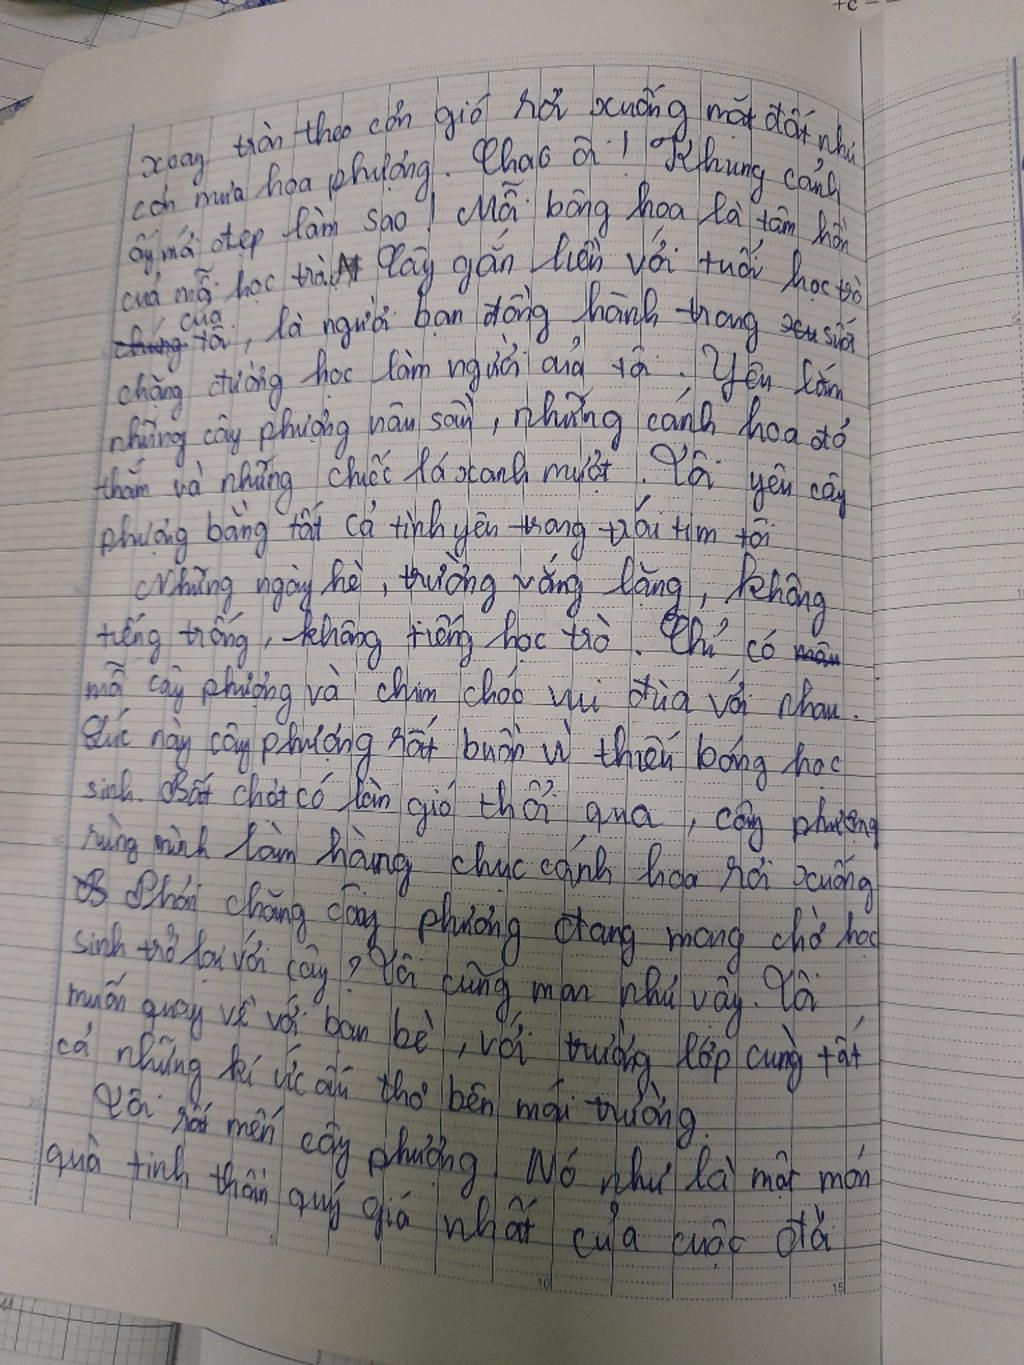 +c
xoay tròn theo cơn gió rơi xuống mặt đất như
cơn mưa hoa phượng. Chao ôi! Khung cảnh
ấy mới đẹp làm sao! Mỗi bông hoa là tâm hồn
của mỗi học trò. Cây gắn liền với tuổi học trò
của tôi, là người bạn đồng hành trong suốt
chặng đường học làm người của tôi. Yêu lắm
những cây phượng nâu sần, những cánh hoa đỏ
thắm và những chiếc lá xanh mượt. Tôi yêu cây
phượng bằng tất cả tình yêu trong trái tim tôi
Những ngày hè, trường vắng lặng, không
tiếng trống, không tiếng học trò. Chỉ có
mỗi cây phượng và chim chóc vui đùa với nhau.
Lúc này cây phượng rất buồn vì thiếu bóng học
sinh. Bất chợt có làn gió thổi qua, cây phượng
rùng mình làm hàng chục cánh hoa rơi xuống
Phải chăng cây phượng đang mong chờ học
sinh trở lại với cây? Tôi cũng như vậy. Tôi
muốn quay về với bạn bè, với trường lớp cùng tất
cả những kí ức ấu thơ bên mái trường.
Tôi rất mến cây phượng. Nó như là một món
quà tinh thần quý giá nhất của cuộc đời
10
15